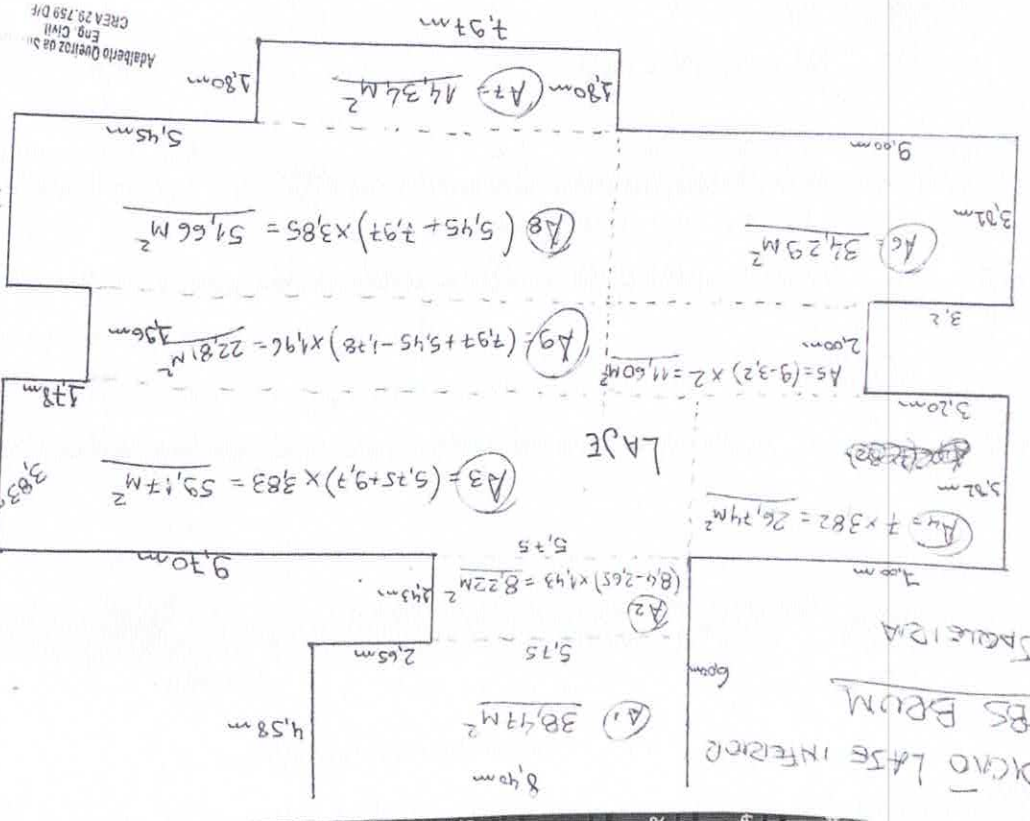 LAJE INFERIOR
BS BRUM
8,40m
A1 38,47M²
4,58m
6,00m
5,75
2,65m
A2
(8,4-2,65)x1,43 = 8,22M²
1,43m
7,00m
5,75
9,70m
A4 = 7 x 3,82 = 26,74M²
3,82m
A3 = (5,75+9,7)x3,83 = 59,17M²
3,83
LAJE
3,20m
1,78m
A5=(9-3,2) x 2 = 11,60M²
2,00m
A9=(7,97+5,45-1,78)x1,96= 22,81M²
1,96m
3,2
A6= 34,29M²
A8 (5,45+7,97)x3,85 = 51,66M²
9,00m
5,45m
1,80m
A7= 14,34M²
1,80m
7,97m
Adalberto Queiroz da
Eng. Civil
CREA 29.759 D/F